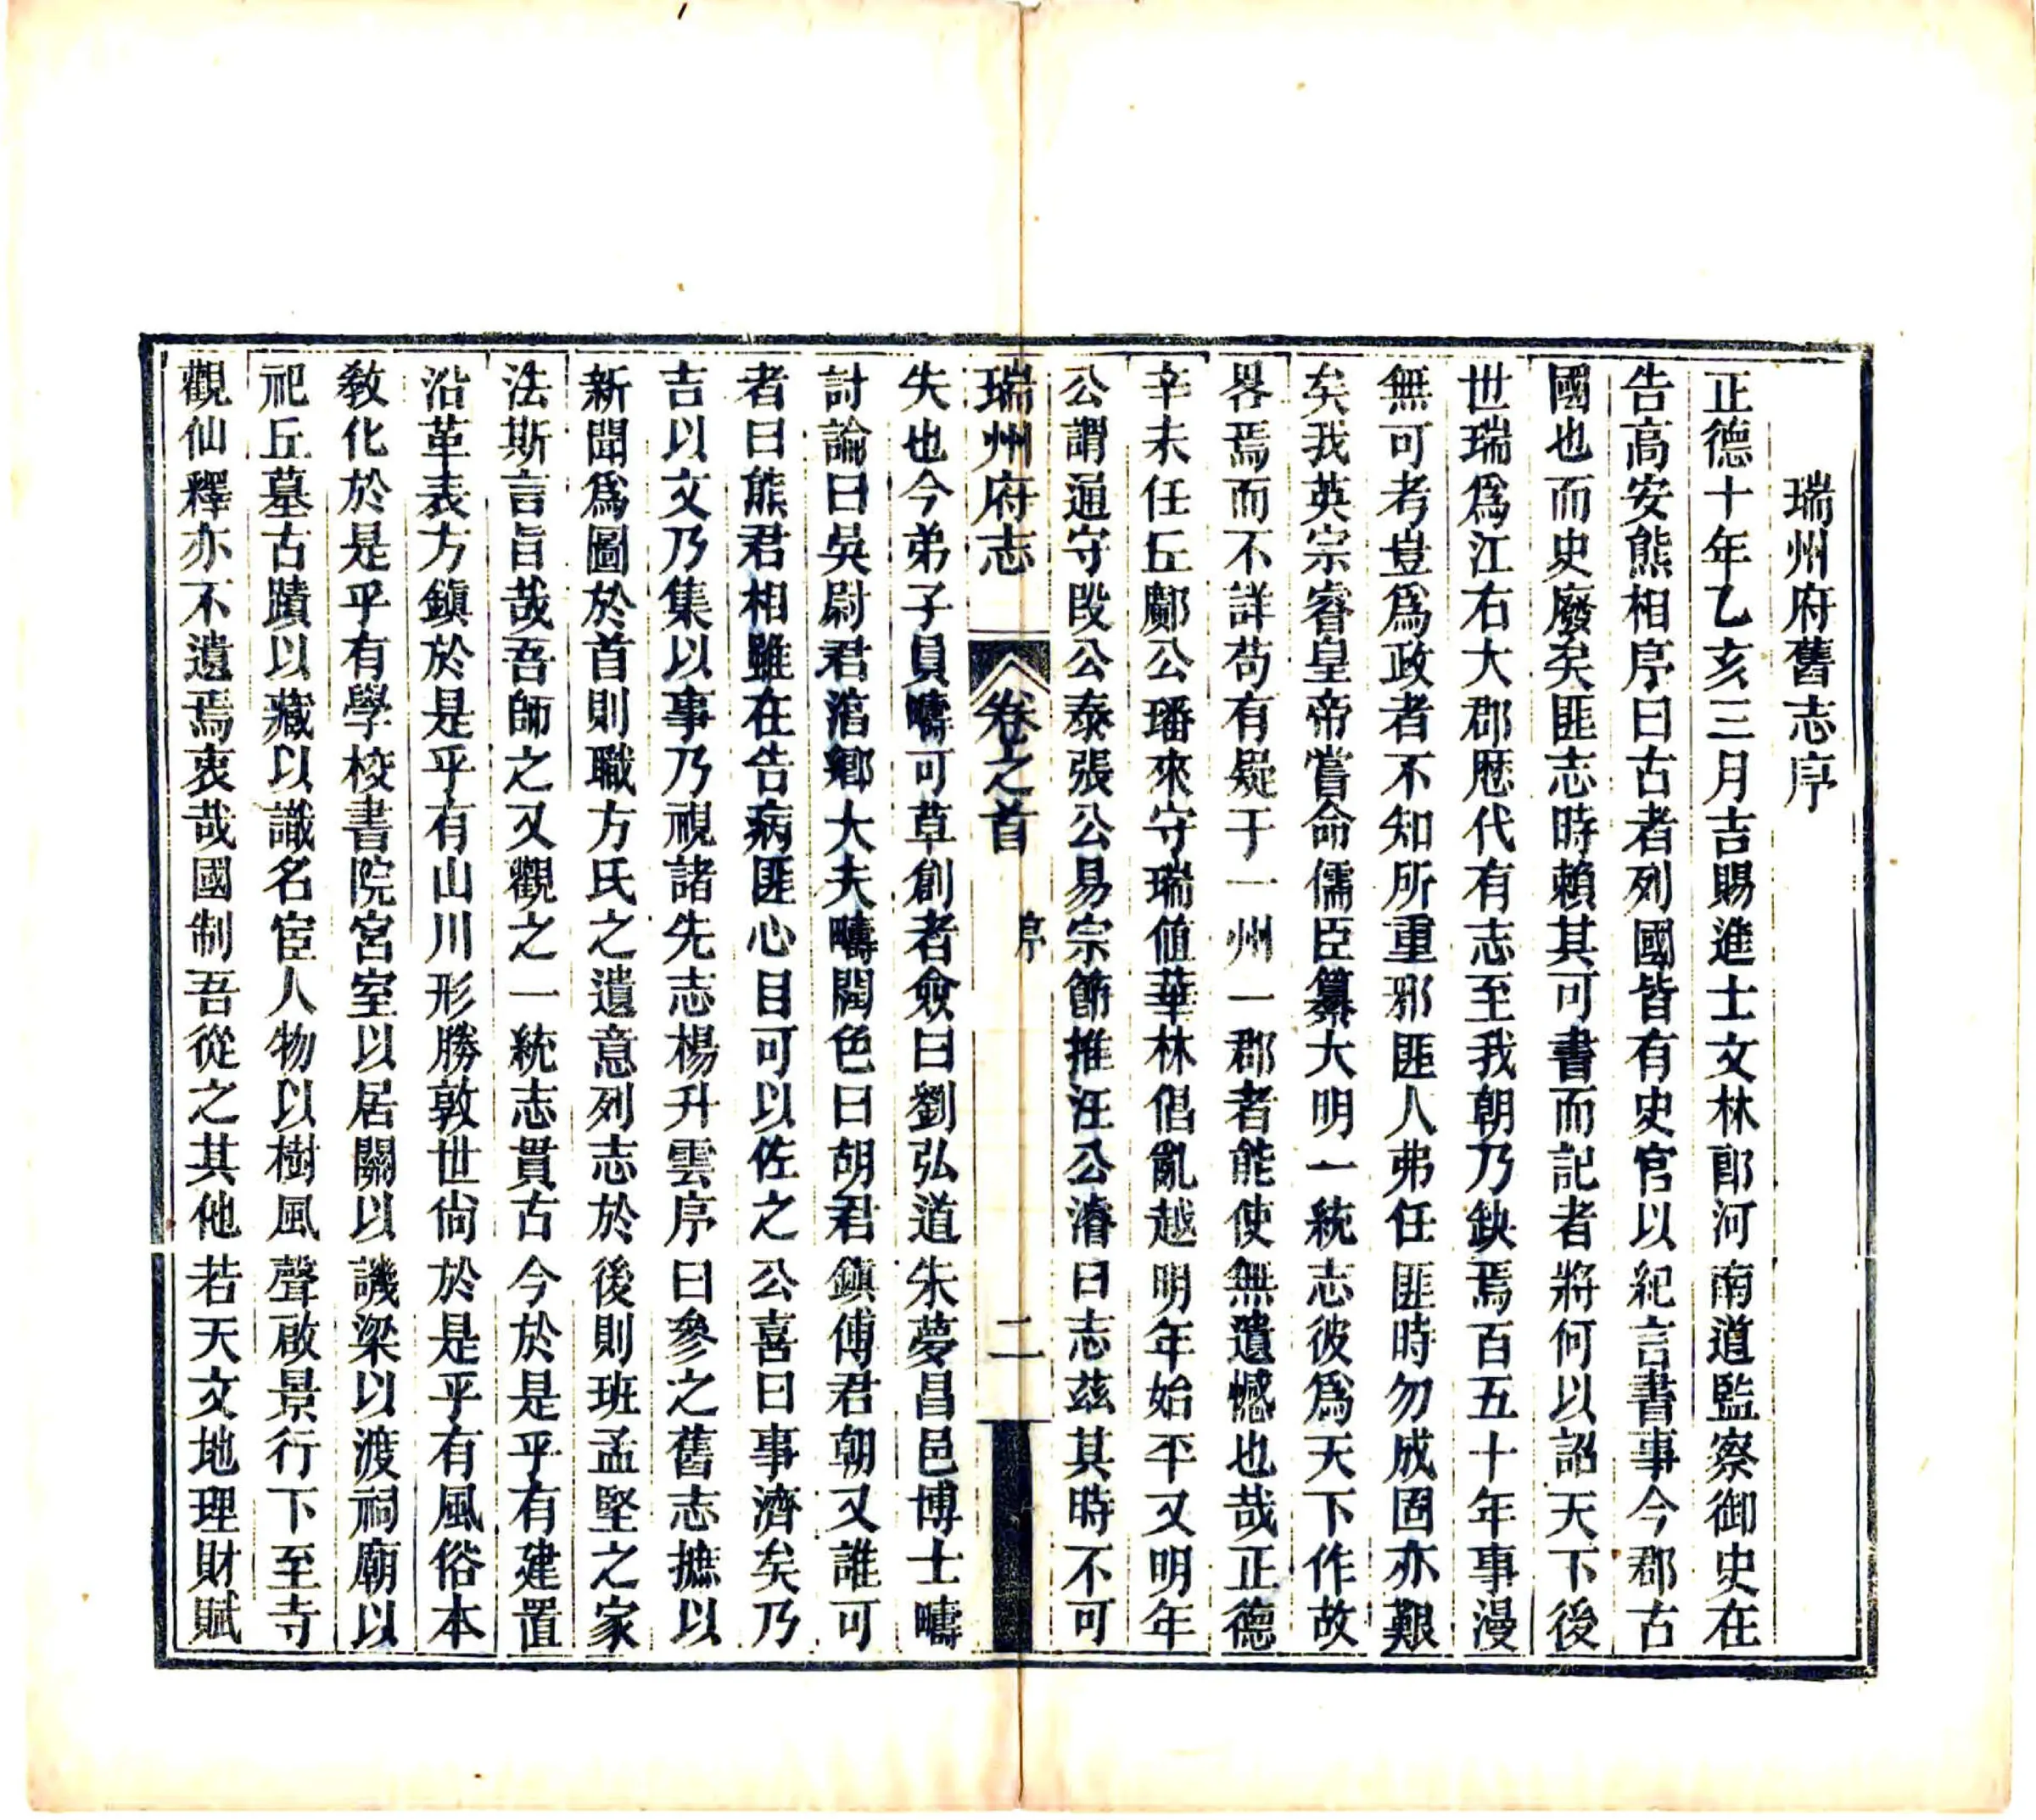 瑞州府舊志序
正德十年乙亥三月吉賜進士文林郎河南道監察御史在
告高安熊相序曰古者列國皆有史官以紀言書事今郡古
國也而史廢矣匪志時賴其可書而記者將何以詔天下後
世瑞爲江右大郡歷代有志至我朝乃缺焉百五十年事漫
無可考豈爲政者不知所重邪匪人弗任匪時勿成固亦艱
矣我英宗睿皇帝嘗命儒臣纂大明一統志彼爲天下作故
畧焉而不詳苟有疑于一州一郡者能使無遺憾也哉正德
辛未任丘鄺公璠來守瑞値華林倡亂越明年始平又明年
公謂通守段公泰張公易宗節推汪公濬曰志茲其時不可
瑞州府志 卷之首 序 二
失也今弟子員疇可草創者僉曰劉弘道朱夢昌邑博士疇
討論曰吳尉君湝鄉大夫疇潤色曰胡君鎭傅君朝又誰可
者曰熊君相雖在告病匪心目可以佐之公喜曰事濟矣乃
吉以文乃集以事乃視諸先志楊升雲序曰參之舊志摭以
新聞爲圖於首則職方氏之遺意列志於後則班孟堅之家
法斯言旨哉吾師之又觀之一統志貫古今於是乎有建置
沿革表方鎭於是乎有山川形勝敦世尙於是乎有風俗本
敎化於是乎有學校書院宮室以居關以譏梁以渡祠廟以
祀丘墓古蹟以藏以識名宦人物以樹風聲啟景行下至寺
觀仙釋亦不遺焉衷哉國制吾從之其他若天文地理財賦